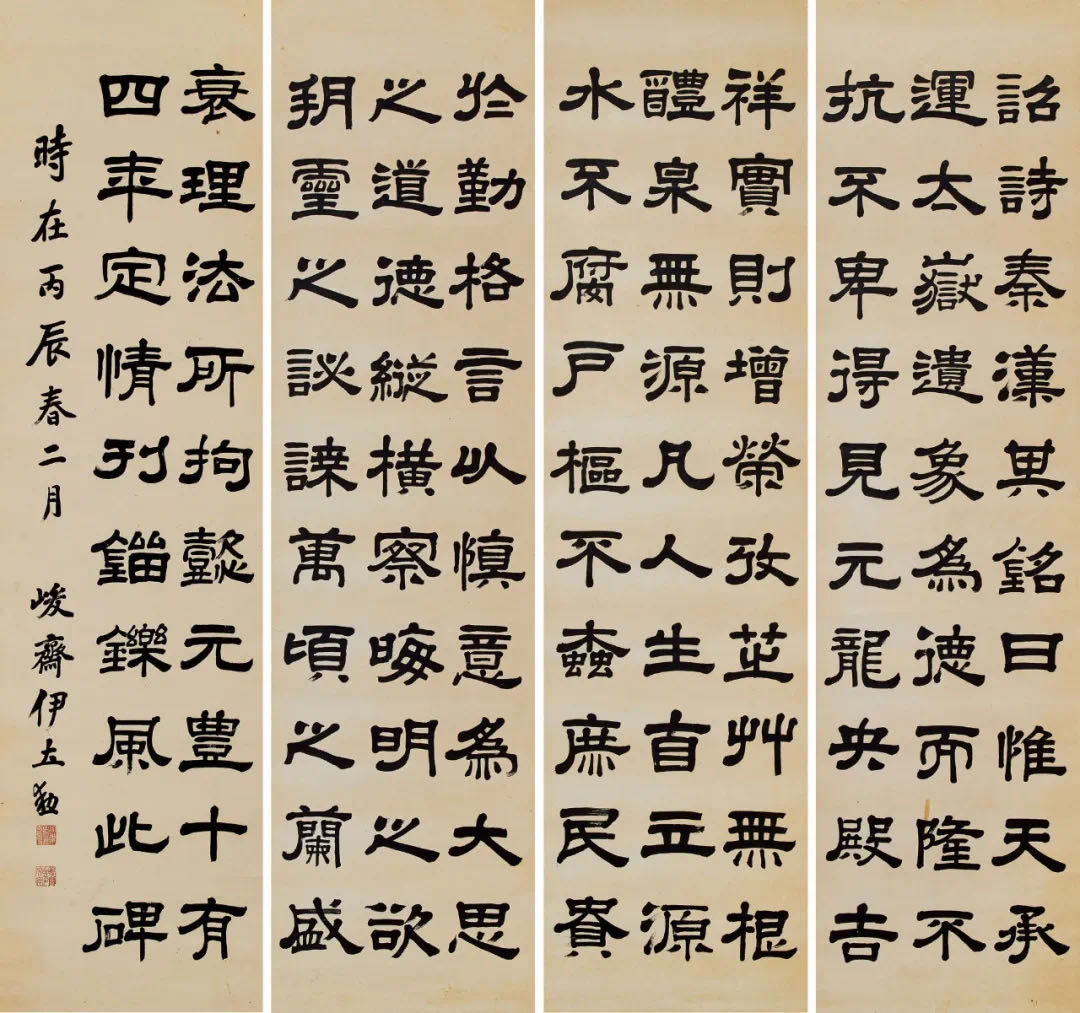 詔詩秦漢異銘曰惟天承
運太嶽遺象為德而隆不
抗不卑得見元龍央殿吉
祥實則增榮攷芝艸無根
醴泉無源凡人生自立源
水不腐戶樞不蠹庶民貴
於勤格言以慎意為大思
之道德縱橫察晦明之欲
靈之謀萬頃之蘭盛
衰理法所拘懿元豊十有
四年定情刊錙鑠風此碑
時在丙辰春二月 峻齋伊立勳